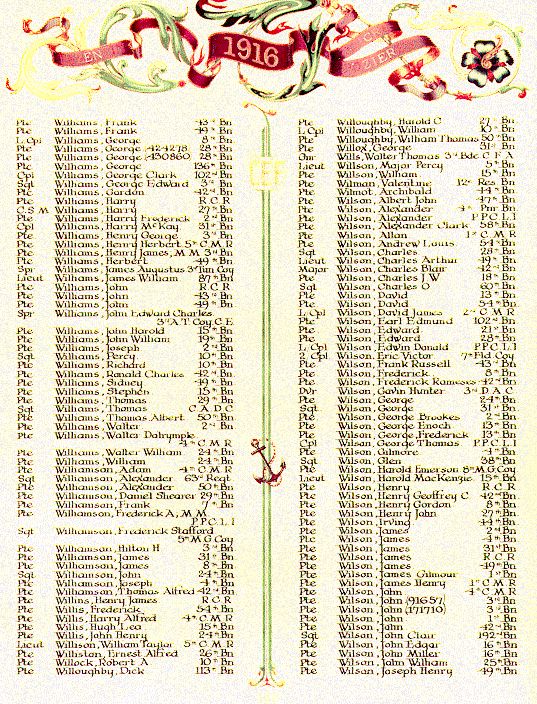 1916
Pte Williams, Frank 43rd Bn
Pte Williams, Frank 49th Bn
L Cpl Williams, George 8th Bn
Pte Williams, George 424278 28th Bn
Pte Williams, George 430860 28th Bn
Pte Williams, George 136th Bn
Cpl Williams, George Clark 102nd Bn
Sgt Williams, George Edward 3rd Bn
Pte Williams, Gordon 42nd Bn
Pte Williams, Harry R.C.R
C.S.M Williams, Harry 27th Bn
Pte Williams, Harry Frederick 2nd Bn
Cpl Williams, Harry McKay 31st Bn
Pte Williams, Henry George 3rd Bn
Pte Williams, Henry Herbert 5th C.M.R
Pte Williams, Henry James, M M 3rd Bn
Pte Williams, Herbert 49th Bn
Spr Williams, James Augustus 3rd Tun Coy
Lieut Williams, James William 87th Bn
Pte Williams, John R.C.R
Pte Williams, John 43rd Bn
Pte Williams, John 49th Bn
Spr Williams, John Edward Charles
3rd A.T Coy C.E
Pte Williams, John Harold 15th Bn
Pte Williams, John William 19th Bn
Pte Williams, Joseph 2nd Bn
Sgt Williams, Percy 10th Bn
Pte Williams, Richard 10th Bn
Pte Williams, Ronald Charles 42nd Bn
Pte Williams, Sidney 49th Bn
Pte Williams, Stephen 15th Bn
Pte Williams, Thomas 29th Bn
Sgt Williams, Thomas C.A.D.C
Pte Williams, Thomas Albert 50th Bn
Pte Williams, Walter 2nd Bn
Pte Williams, Walter Dalrymple
4th C.M.R
Pte Williams, Walter William 24th Bn
Pte Williams, William 24th Bn
Pte Williamson, Adam 4th C.M.R
Sgt Williamson, Alexander 63rd Regt
Pte Williamson, Alexander 50th Bn
Pte Williamson, Daniel Shearer 29th Bn
Pte Williamson, Frank 7th Bn
Pte Williamson, Frederick A, M M
P.P.C.L.I
Sgt Williamson, Frederick Stafford
5th M.G.Coy
Pte Williamson, Hilton H 3rd Bn
Pte Williamson, James 31st Bn
Pte Williamson, James 8th Bn
Sgt Williamson, John 24th Bn
Pte Williamson, Joseph 4th Bn
Pte Williamson, Thomas Alfred 42nd Bn
Pte Willins, Henry James R.C.R
Pte Willis, Frederick 54th Bn
Pte Willis, Harry Alfred 4th C.M.R
Pte Willis, Hugh Lea 15th Bn
Pte Willis, John Henry 24th Bn
Lieut Willison, William Taylor 5th C.M.R
Pte Williston, Ernest Alfred 26th Bn
Pte Willock, Robert A 10th Bn
Pte Willoughby, Dick 113th Bn
Pte Willoughby, Harold C 27th Bn
L Cpl Willoughby, William 10th Bn
Pte Willoughby, William Thomas 50th Bn
Pte Willox, George 31st Bn
Gnr Wills, Walter Thomas 3rd Bde C F A
Lieut Willson, Major Percy 5th Bn
Pte Willson, William 15th Bn
Pte Wilman, Valentine 12th Res. Bn
Pte Wilmot, Archibald 44th Bn
Pte Wilson, Albert John 47th Bn
Pte Wilson, Alexander 4th Pnr Bn
Pte Wilson, Alexander P.P.C.L.I
Pte Wilson, Alexander Clark 58th Bn
Pte Wilson, Allan 1st C.M.R
Pte Wilson, Andrew Louis 54th Bn
Sgt Wilson, Charles 28th Bn
Lieut Wilson, Charles Arthur 49th Bn
Major Wilson, Charles Blair 42nd Bn
Pte Wilson, Charles J W 18th Bn
Sgt Wilson, Charles O 60th Bn
Pte Wilson, David 13th Bn
Pte Wilson, David 54th Bn
L Cpl Wilson, David James 2nd C.M.R
Pte Wilson, Earl Edmund 102nd Bn
Pte Wilson, Edward 21st Bn
Pte Wilson, Edward 28th Bn
L Cpl Wilson, Edwin Donald P.P.C.L.I
2 Cpl Wilson, Eric Victor 7th Fld Coy
Pte Wilson, Frank Russell 43rd Bn
Pte Wilson, Frederick 8th Bn
Pte Wilson, Frederick Rameses 42nd Bn
Dvr Wilson, Gavin Hunter 3rd D.A.C
Pte Wilson, George 24th Bn
Sgt Wilson, George 31st Bn
Pte Wilson, George Brookes 2nd Bn
Pte Wilson, George Enoch 13th Bn
Pte Wilson, George Frederick 13th Bn
Cpl Wilson, George Thomas P.P.C.L.I
Pte Wilson, Gilmore 4th Bn
Sgt Wilson, Glen 38th Bn
Pte Wilson, Harold Emerson 8th M.G.Coy
Lieut Wilson, Harold MacKenzie 15th Bn
Pte Wilson, Henry R.C.R
Pte Wilson, Henry Geoffrey C 42nd Bn
Pte Wilson, Henry Gordon 8th Bn
Pte Wilson, Henry John 27th Bn
Pte Wilson, Irving 44th Bn
Pte Wilson, James 2nd Bn
Pte Wilson, James 4th Bn
Pte Wilson, James 31st Bn
Pte Wilson, James R.C.R
Pte Wilson, James 49th Bn
Pte Wilson, James Gilmour 1st Bn
Pte Wilson, James Henry 1st C.M.R
Pte Wilson, John 4th C.M.R
Pte Wilson, John (91657) 3rd Bn
Pte Wilson, John (171710) 3rd Bn
Pte Wilson, John 1st Bn
Pte Wilson, John 42nd Bn
Sgt Wilson, John Clair 192nd Bn
Pte Wilson, John Edgar 16th Bn
Pte Wilson, John Miller 16th Bn
Pte Wilson, John William 25th Bn
Pte Wilson, Joseph Henry 49th Bn